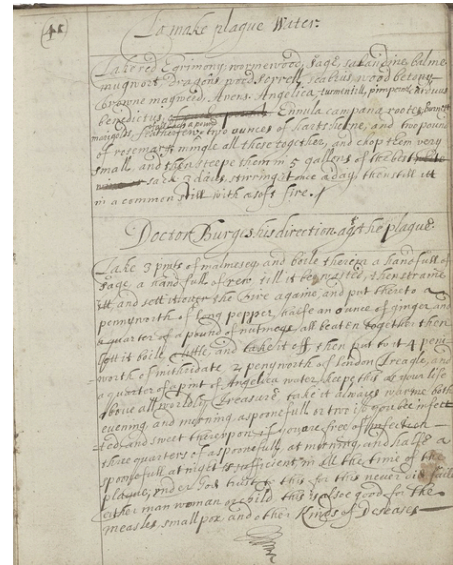 (48
To make plague Water:
Take red Egrimony, wormewood, sage, salandine, balme
mugwort, Dragons, sorrell, scabius, wood betony
browne mugweed, Avens, Angelica, turmentill, pimpernell,
benedictus, Ennula campana roote,
halfe a pound
two ounces of hartshorne, and two pound
of rosemary, mingle all these together, and chop them very
small, and then steepe them in 5 gallons of the best
sack 3 daies stirring it once a day, then still itt
in a common still with a soft fire.
Doctor Burges his direction agt the plague:
Take 3 pints of malmesey and boile therein a handfull of
sage, a handfull of rew till it bee wasted, then straine
itt, and sett it over the fire againe, and put thereto a
pennyworth of long pepper, halfe an ounce of ginger and
a quarter of a pound of nutmegs all beaten together then
lett it boile a little, and take it off then put to it 4 peni
worth of mithridate, 2 penyworth of London Treagle, and
a quarter of a pint of Angelica water, keepe this as your life
above all worldly treasure, take it always warme both
evening and morning, a spoonefull or two if you bee infect
ted, and sweat thereupon if you are free of infection
three quarters of a spoonefull, at morning, and halfe a
spoonefull at night is sufficient, in all the time of the
plague, under God trust to this for this never did faile
either man woman or child, this is also good for the
measles, small pox, and other Kinds of Deseases